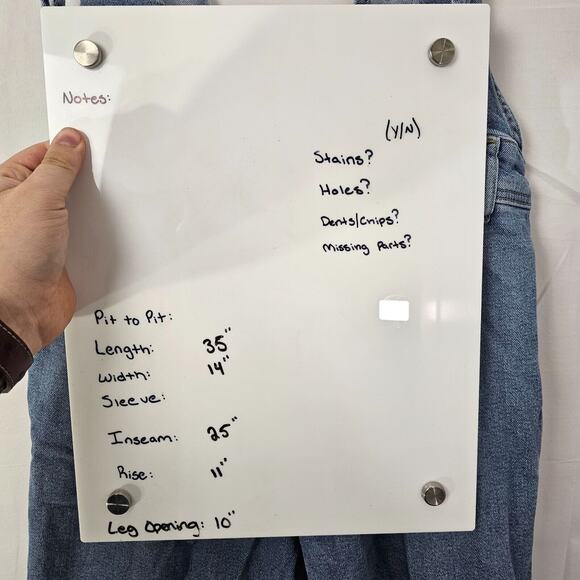 Notes:
(Y/N)
Stains?
Holes?
Dents/Chips?
Missing Parts?
Pit to Pit:
Length: 35"
Width: 14"
Sleeve:
Inseam: 25"
Rise: 11"
Leg Opening: 10"